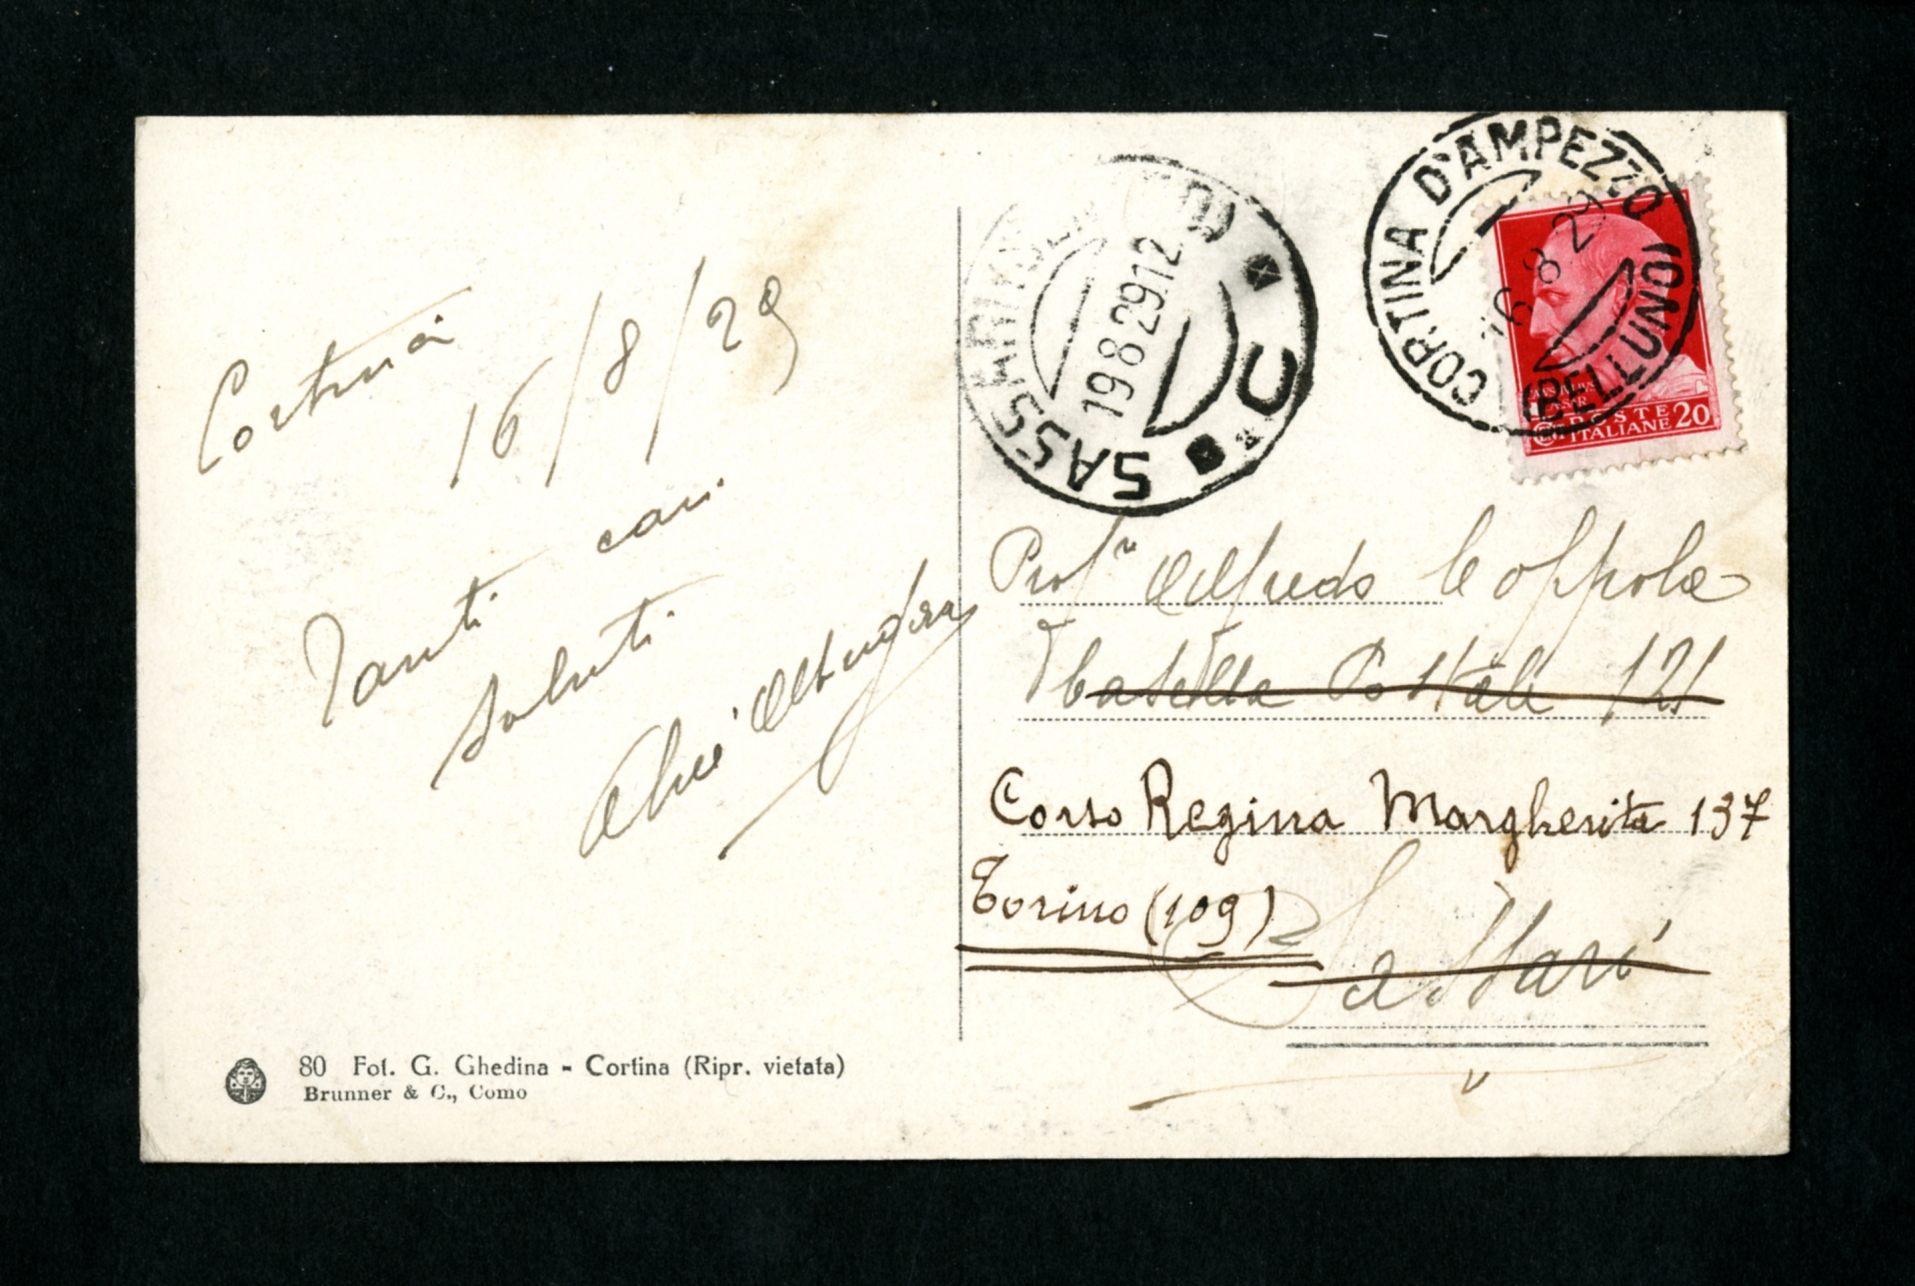 Cortina
16/8/29
Tanti cari
saluti
SASSARI
19 8 29 12
CORTINA D'AMPEZZO
(BELLUNO)
16 8 29
POSTE
ITALIANE 20
Prof Alfredo Coppola
Casella Postale 121
Corso Regina Margherita 137
Torino (109)
Sassari
80 Fot. G. Ghedina - Cortina (Ripr. vietata)
Brunner & C., Como